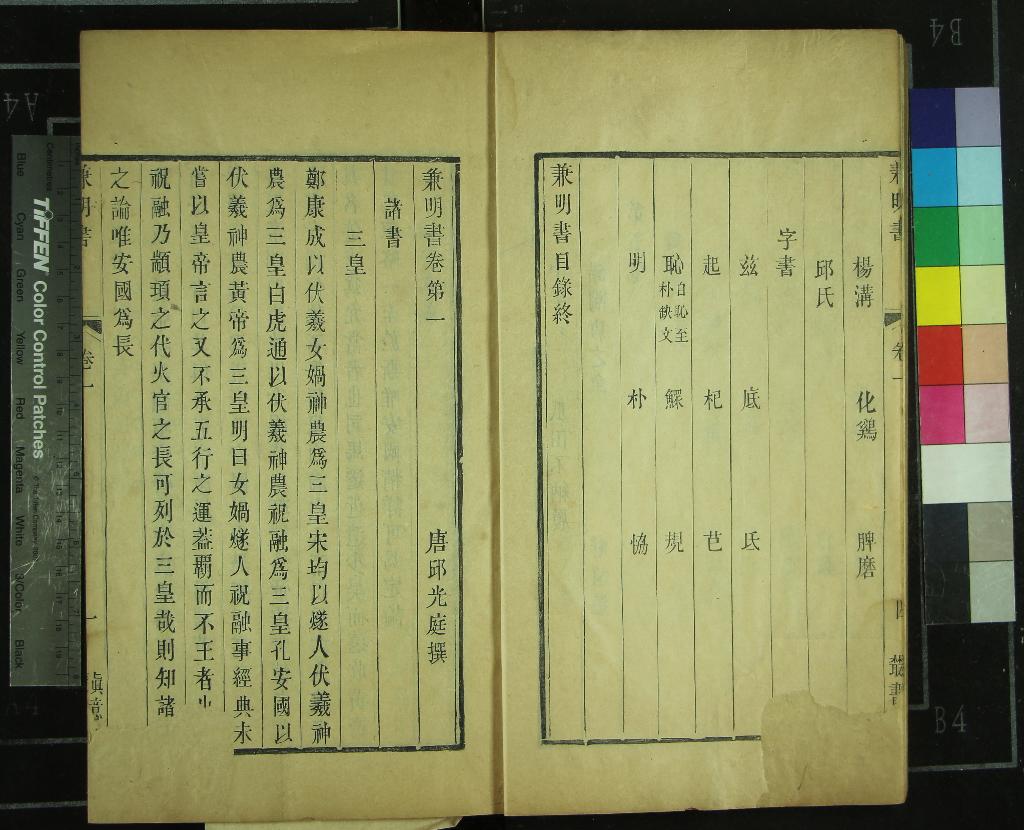 兼明書
卷一
四
叢書
楊溝 化鷄 脾磨
邱氏
字書
茲 底 氐
起 杞 芑
恥白恥至朴缺文 鰥 規
明 朴 恊
兼明書目錄終
兼明書卷第一 唐邱光庭撰
諸書
三皇
鄭康成以伏羲女媧神農爲三皇宋均以燧人伏羲神
農爲三皇白虎通以伏羲神農祝融爲三皇孔安國以
伏羲神農黃帝爲三皇明曰女媧燧人祝融事經典未
嘗以皇帝言之又不承五行之運葢霸而不王者也
祝融乃顓頊之代火官之長可列於三皇哉則知諸
之論唯安國爲長
兼明書
卷一
一
眞意
B4
B4
A4
TIFFEN Color Control Patches
© The Tiffen Company
Centimetres
Blue
Cyan
Green
Yellow
Red
Magenta
White
3/Color
Black